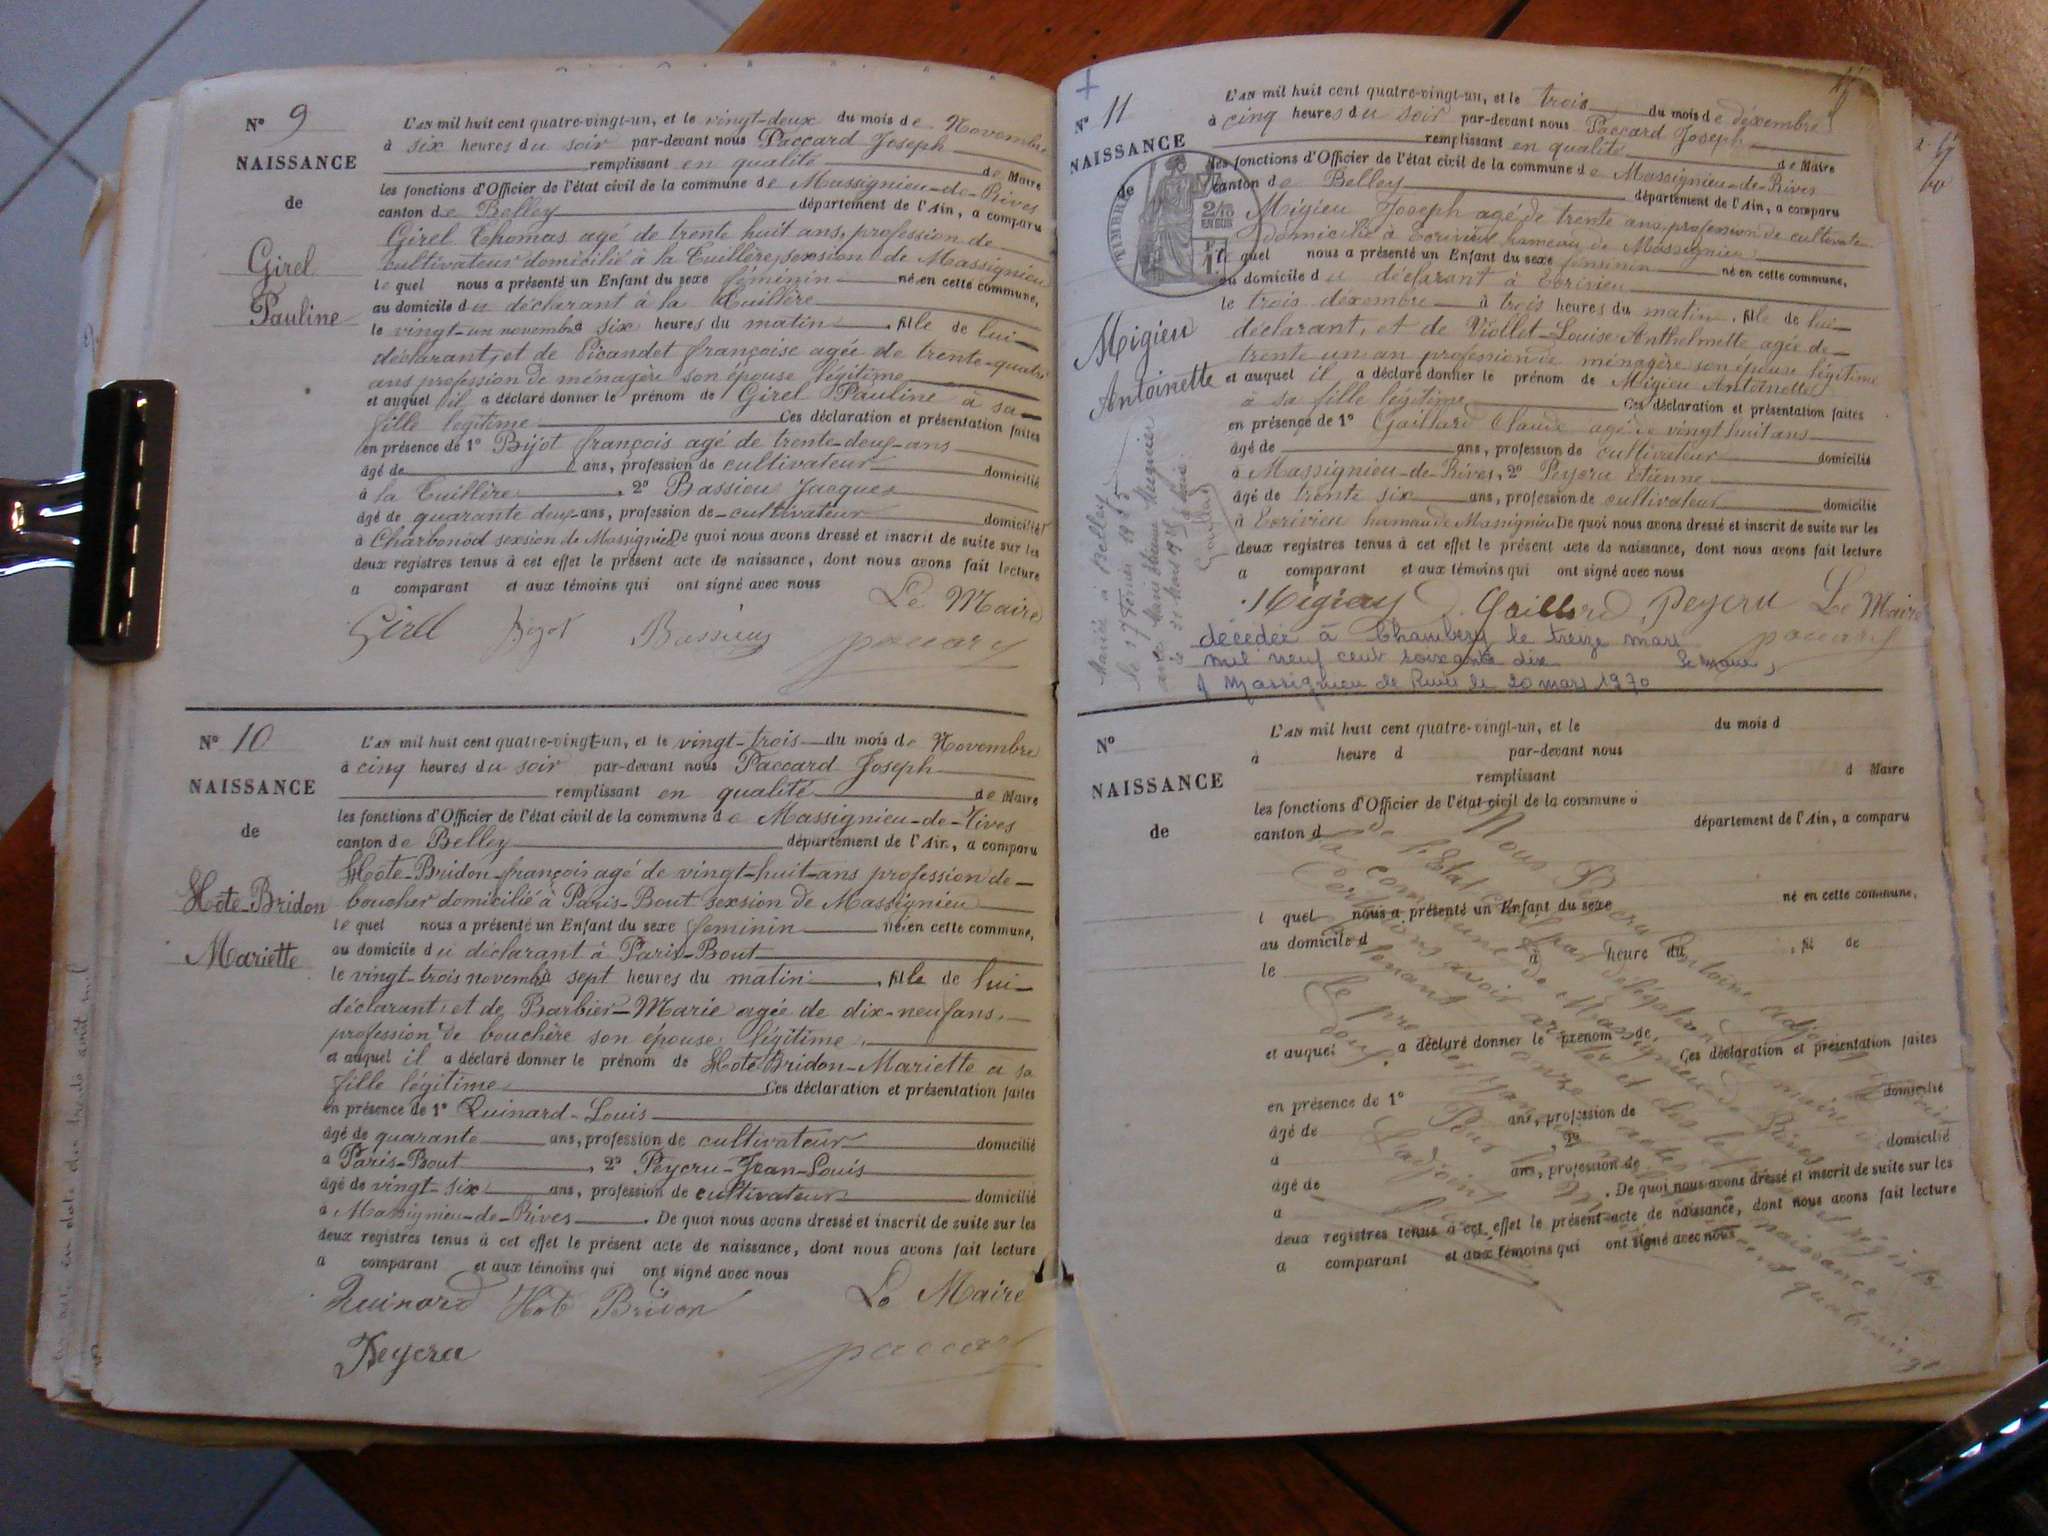 N° 9
NAISSANCE
de
Girel
Pauline
L'AN mil huit cent quatre-vingt-un, et le vingt-deux du mois de Novembre
à six heures du soir par-devant nous Paccard Joseph
remplissant en qualité de Maire
les fonctions d'Officier de l'état civil de la commune de Massignieu-de-Rives
canton de Belley département de l'Ain, a comparu
Girel Thomas agé de trente huit ans, profession de
cultivateur domicilié à la Tuillère, sexsion de Massignieu
le quel nous a présenté un Enfant du sexe féminin né en cette commune,
au domicile du déclarant à la Tuillère
le vingt-un novembre six heures du matin, fille de lui
déclarant, et de Picandet françoise agée de trente-quatre
ans profession de ménagère son épouse légitime
et auquel il a déclaré donner le prénom de Girel Pauline à sa
fille légitime Ces déclaration et présentation faites
en présence de 1° Bijot françois agé de trente-deux-ans
âgé de ans, profession de cultivateur domicilié
à la Tuillère, 2° Bassieu Jacques
âgé de quarante deux-ans, profession de cultivateur domicilié
à Charbonod sexsion de Massignieu De quoi nous avons dressé et inscrit de suite sur les
deux registres tenus à cet effet le présent acte de naissance, dont nous avons fait lecture
a comparant et aux témoins qui ont signé avec nous
Le Maire
Girel Bijot Bassieu paccard
N° 10
NAISSANCE
de
Hote-Bridon
Mariette
L'AN mil huit cent quatre-vingt-un, et le vingt-trois du mois de Novembre
à cinq heures du soir par-devant nous Paccard Joseph
remplissant en qualité de Maire
les fonctions d'Officier de l'état civil de la commune de Massignieu-de-Rives
canton de Belley département de l'Ain, a comparu
Hote-Bridon-françois agé de vingt-huit-ans profession de
boucher domicilié à Paris-Bout sexsion de Massignieu
le quel nous a présenté un Enfant du sexe feminin né en cette commune,
au domicile du déclarant à Paris-Bout
le vingt-trois novembre sept heures du matin, fille de lui
déclarant, et de Barbier-Marie agée de dix-neuf ans,
profession de bouchère son épouse légitime
et auquel il a déclaré donner le prénom de Hote-Bridon-Mariette à sa
fille légitime Ces déclaration et présentation faites
en présence de 1° Quinard-Louis
âgé de quarante ans, profession de cultivateur domicilié
à Paris-Bout, 2° Peycru-Jean-Louis
âgé de vingt-six ans, profession de cultivateur domicilié
à Massignieu-de-Rives. De quoi nous avons dressé et inscrit de suite sur les
deux registres tenus à cet effet le présent acte de naissance, dont nous avons fait lecture
a comparant et aux témoins qui ont signé avec nous
Quinard Hote Bridon Le Maire
Peycru paccard
N° 11
NAISSANCE
de
TIMBRE
Migieu
Antoinette
L'AN mil huit cent quatre-vingt-un, et le trois du mois de déxembre
à cinq heures du soir par-devant nous Paccard Joseph
remplissant en qualité de Maire
les fonctions d'Officier de l'état civil de la commune de Massignieu-de-Rives
canton de Belley département de l'Ain, a comparu
Migieu Joseph agé de trente ans, profession de cultivateur
domicilié à Ecrivieu hameau de Massignieu
l quel nous a présenté un Enfant du sexe féminin né en cette commune,
au domicile du déclarant à Ecrivieu
le trois déxembre à trois heures du matin, fille de lui
déclarant, et de Viollet-Louise Anthelmette agée de
trente un an profession de ménagère son épouse légitime
et auquel il a déclaré donner le prénom de Migieu Antoinette
à sa fille légitime Ces déclaration et présentation faites
en présence de 1° Gaillard Claude agé de vingt huit ans
âgé de ans, profession de cultivateur domicilié
à Massignieu-de-Rives, 2° Peycru Etienne
âgé de trente six ans, profession de cultivateur domicilié
à Ecrivieu hameau de Massignieu De quoi nous avons dressé et inscrit de suite sur les
deux registres tenus à cet effet le présent acte de naissance, dont nous avons fait lecture
a comparant et aux témoins qui ont signé avec nous
Migieu Gaillard Peycru Le Maire
paccard
décédée à Chambéry le treize mars
mil neuf cent soixante dix le maire,
A Massignieu de Rives le 20 mars 1970
Mariée à Belley
le 17 février 1905
N°
NAISSANCE
de
L'AN mil huit cent quatre-vingt-un, et le du mois d
à heure d par-devant nous
remplissant d Maire
les fonctions d'Officier de l'état civil de la commune d
canton d département de l'Ain, a comparu
l quel nous a présenté un Enfant du sexe né en cette commune,
au domicile d
le à heure du , fil de
et auquel a déclaré donner le prénom de
Ces déclaration et présentation faites
en présence de 1°
âgé de ans, profession de domicilié
à , 2°
âgé de ans, profession de domicilié
à . De quoi nous avons dressé et inscrit de suite sur les
deux registres tenus à cet effet le présent acte de naissance, dont nous avons fait lecture
a comparant et aux témoins qui ont signé avec nous
Nous Peycru Antoine adjoint
de l'Etat civil par délégation du maire de
la commune de Massignieu de Rives
Certifions avoir arrêté et clos le
le présent